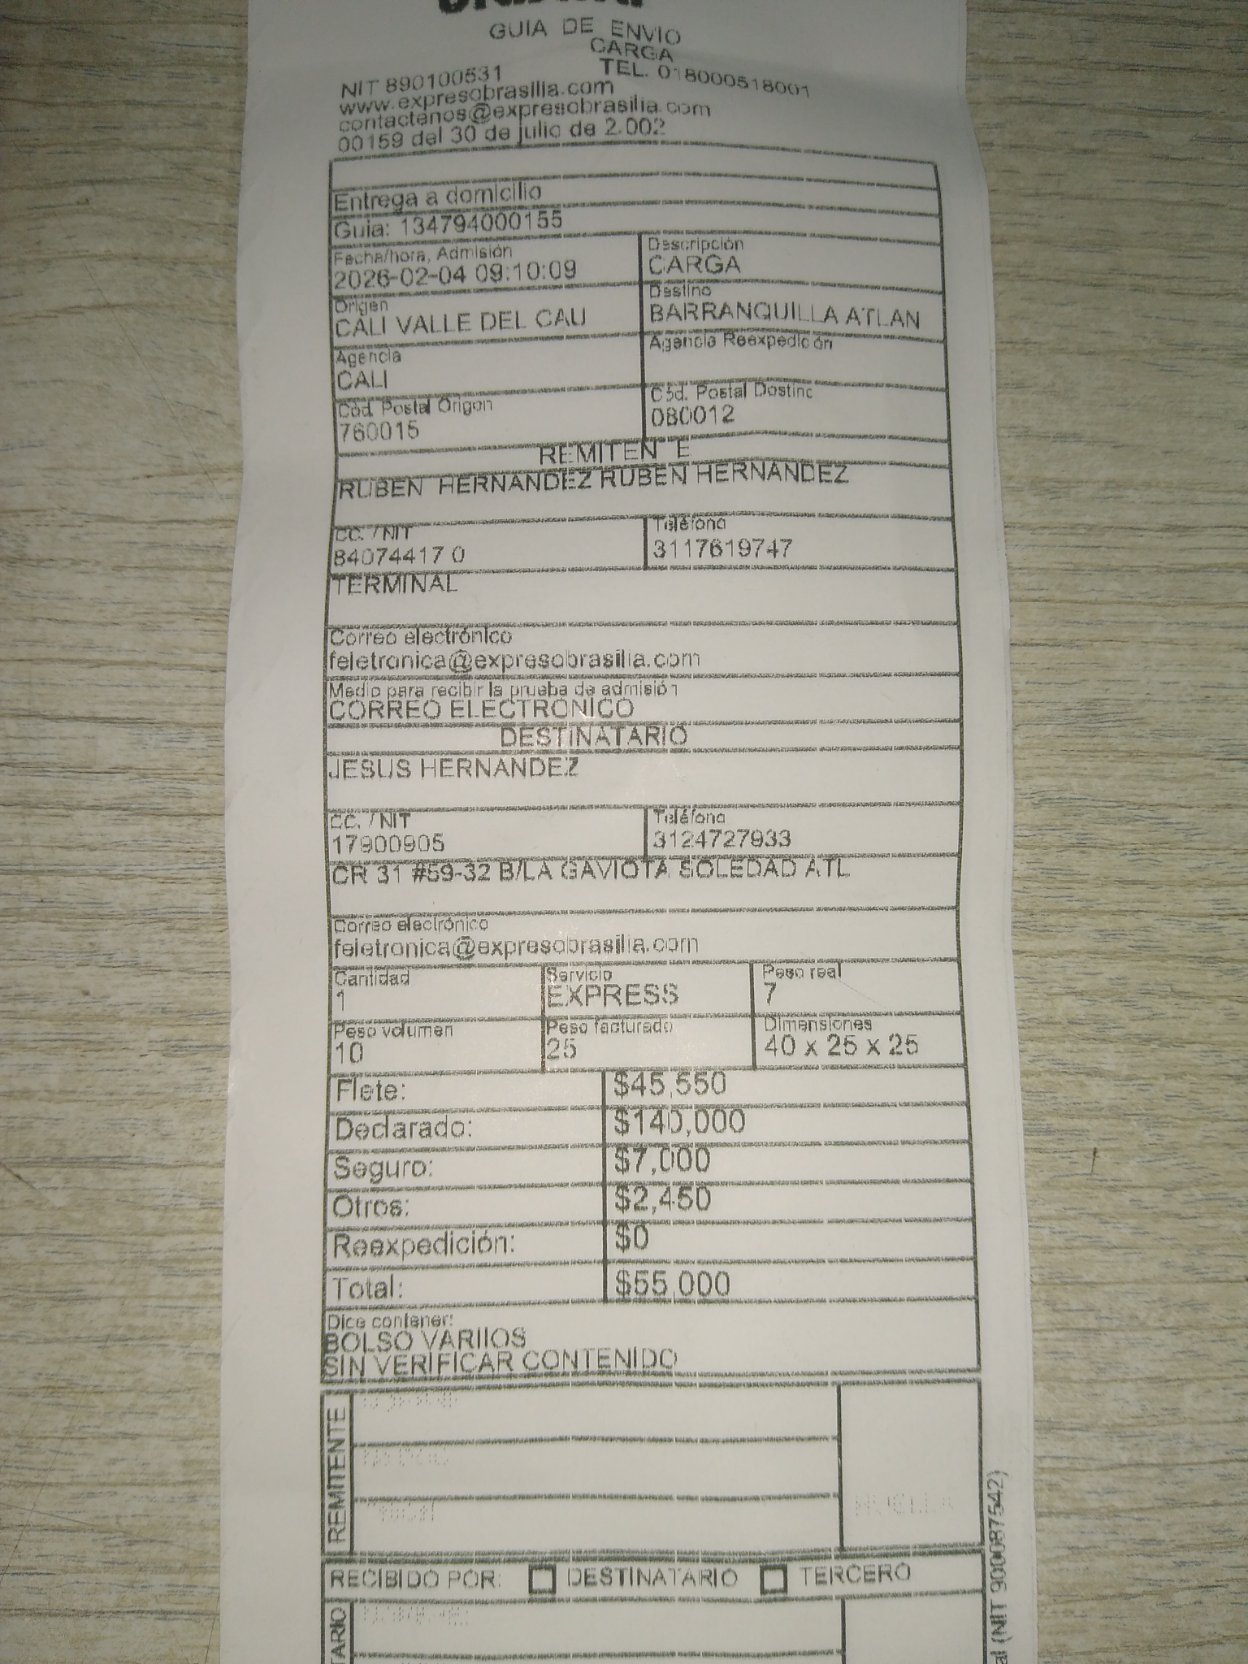 GUIA DE ENVIO
CARGA
NIT 890100531 TEL. 018000518001
www.expresobrasilia.com
contactenos@expresobrasilia.com
00159 del 30 de julio de 2.002
Entrega a domicilio
Guia: 134794000155
Fecha/hora, Admisión
2026-02-04 09:10:09
Descripción
CARGA
Origen
CALI VALLE DEL CAU
Destino
BARRANQUILLA ATLAN
Agencia
CALI
Agencia Reexpedición
Cód. Postal Origen
760015
Cód. Postal Destino
080012
REMITENTE
RUBEN HERNANDEZ RUBEN HERNANDEZ
CC. / NIT
84074417 0
Teléfono
3117619747
TERMINAL
Correo electrónico
feletronica@expresobrasilia.com
Medio para recibir la prueba de admisión
CORREO ELECTRONICO
DESTINATARIO
JESUS HERNANDEZ
CC. / NIT
17900905
Teléfono
3124727933
CR 31 #59-32 B/LA GAVIOTA SOLEDAD ATL
Correo electrónico
feletronica@expresobrasilia.com
Cantidad
1
Servicio
EXPRESS
Peso real
7
Peso volumen
10
Peso facturado
25
Dimensiones
40 x 25 x 25
Flete: $45,550
Declarado: $140,000
Seguro: $7,000
Otros: $2,450
Reexpedición: $0
Total: $55,000
Dice contener:
BOLSO VARIIOS
SIN VERIFICAR CONTENIDO
REMITENTE
RECIBIDO POR: DESTINATARIO TERCERO
(NIT 900087542)